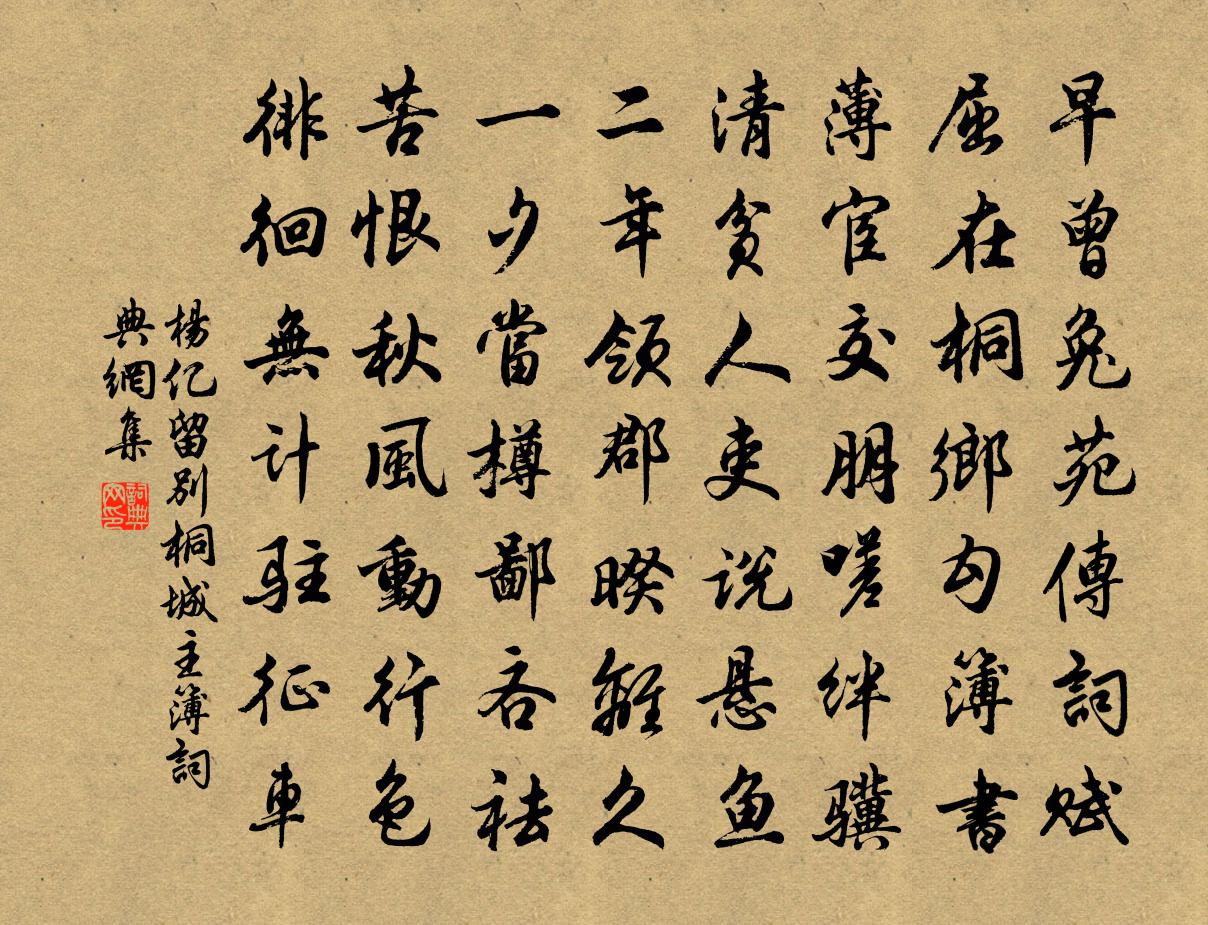 早曾兔苑傳詞賦
屈在桐鄉勾簿書
薄宦交朋嗟絆驥
清貧人吏説懸魚
二年領郡暌離久
一夕當樽鄙吝祛
苦恨秋風動行色
徘徊無計駐征車
楊亿留別桐城主簿詞
典網集
詞典
网印